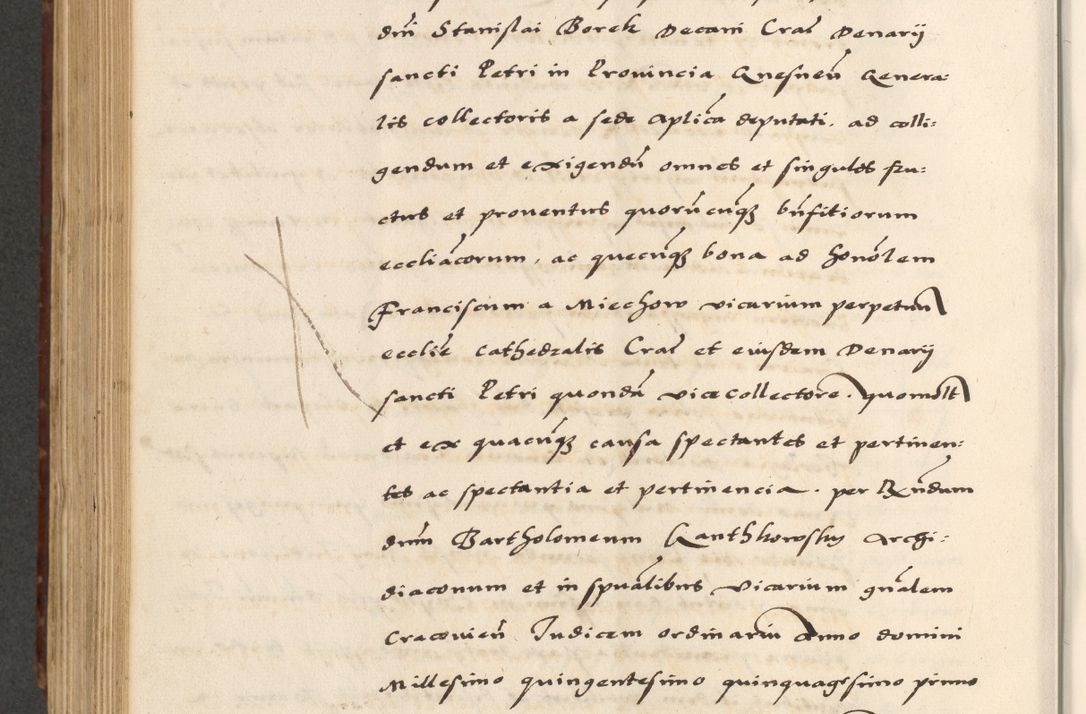 dnī Stanislai Borek Decani Craā Denarij
sancti Petri in Prouincia Gnesneñ Genera:
lis collectoris a sede aplīca deputati. ad colli:
gendum et exigendū omnes et singulos fru:
ctus et prouentus quorūcūqꝫ bnfitiorum
eccliācorum, ac quecūqꝫ bona ad honōlem
Franciscum a Miechow vicarium perpetuū
ecclie cathedralis Craā et eiusdem Denarij
sancti Petri quondā vicecollectore. quomōlt
et ex quacūqꝫ causa spectantes et pertinen:
tes ac spectantia et pertinencia. per Rn̄dum
dnm̄ Bartholomeum Ganthkowsky Archi:
diaconum et in spūalibus vicarium gn̄alem
Cracovieñ Iudicem ordinariū Anno domini
Millesimo quingentesimo quinquagesimo primo